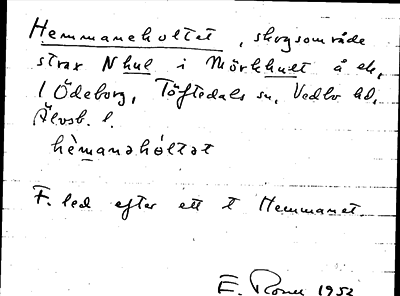 Hemmaneholtet, skogsområde
strax N hul i Mörkhult å ek,
1 Ödeborg, Töftedals sn, Vedbo hd,
Älvsb. l.
hèmanəhòltət
F. led efter ett t Hemmanet.
E. 1952